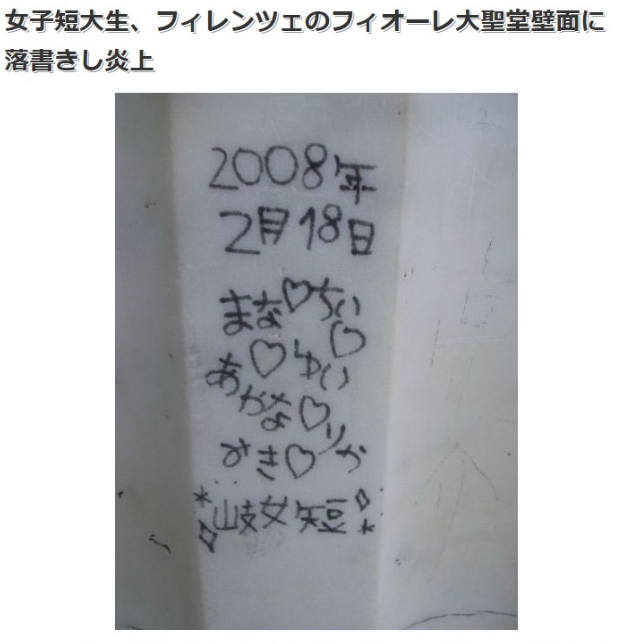 女子短大生、フィレンツェのフィオーレ大聖堂壁面に
落書きし炎上
2008年
2月18日
まな♡ちい
♡
あ♡ゆい
かな♡りか
みき♡
*岐女短*